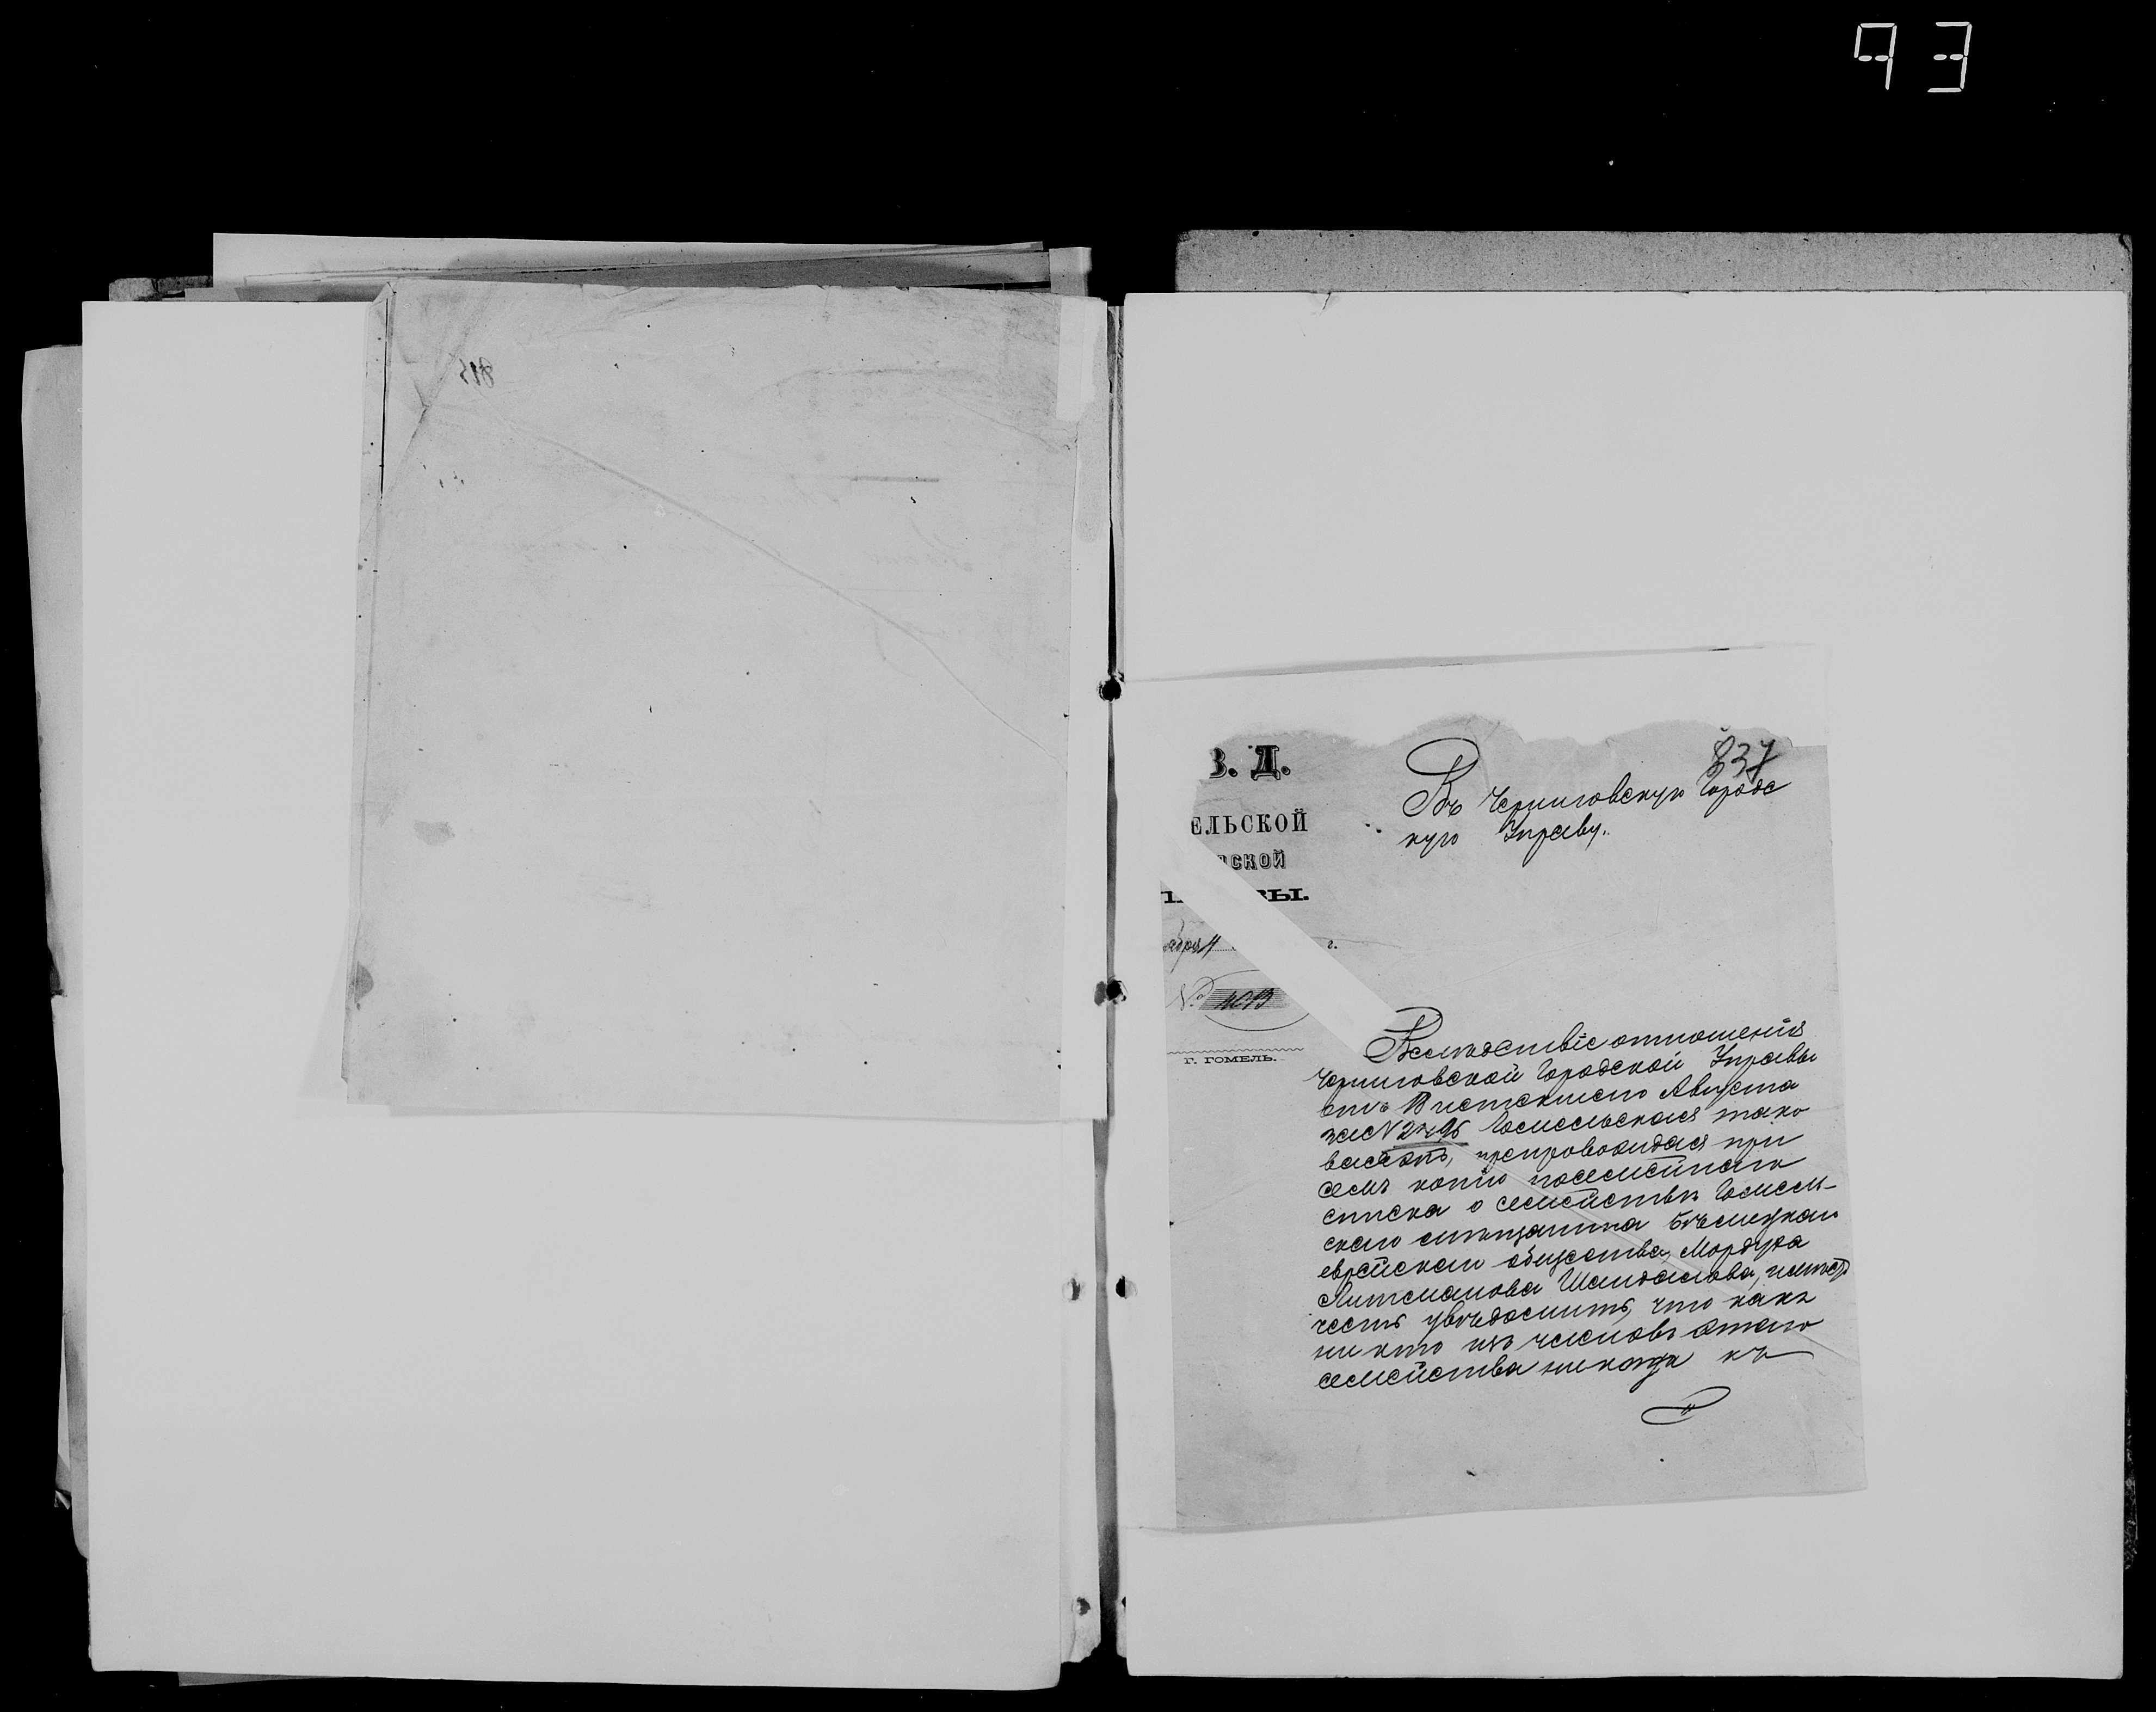 93
837
З. Д.
ЕЛЬСКОЙ
СКОЙ
ВЫ.
г.
№
г. ГОМЕЛЬ.
Въ Черниговскую Городс
кую Управу.
Вслѣдствіе отношенія
Черниговской Городской Управы
отъ истекшаго Августа
за № Гомельская тако
препровождая при
семъ копію посемейнаго
списка о семействѣ Гомель-
скаго мѣщанина Бѣлицкаго
еврейскаго общества, Мордуха
имѣетъ
честь увѣдомить, что какъ
никто изъ членовъ этаго
семейства никогда къ